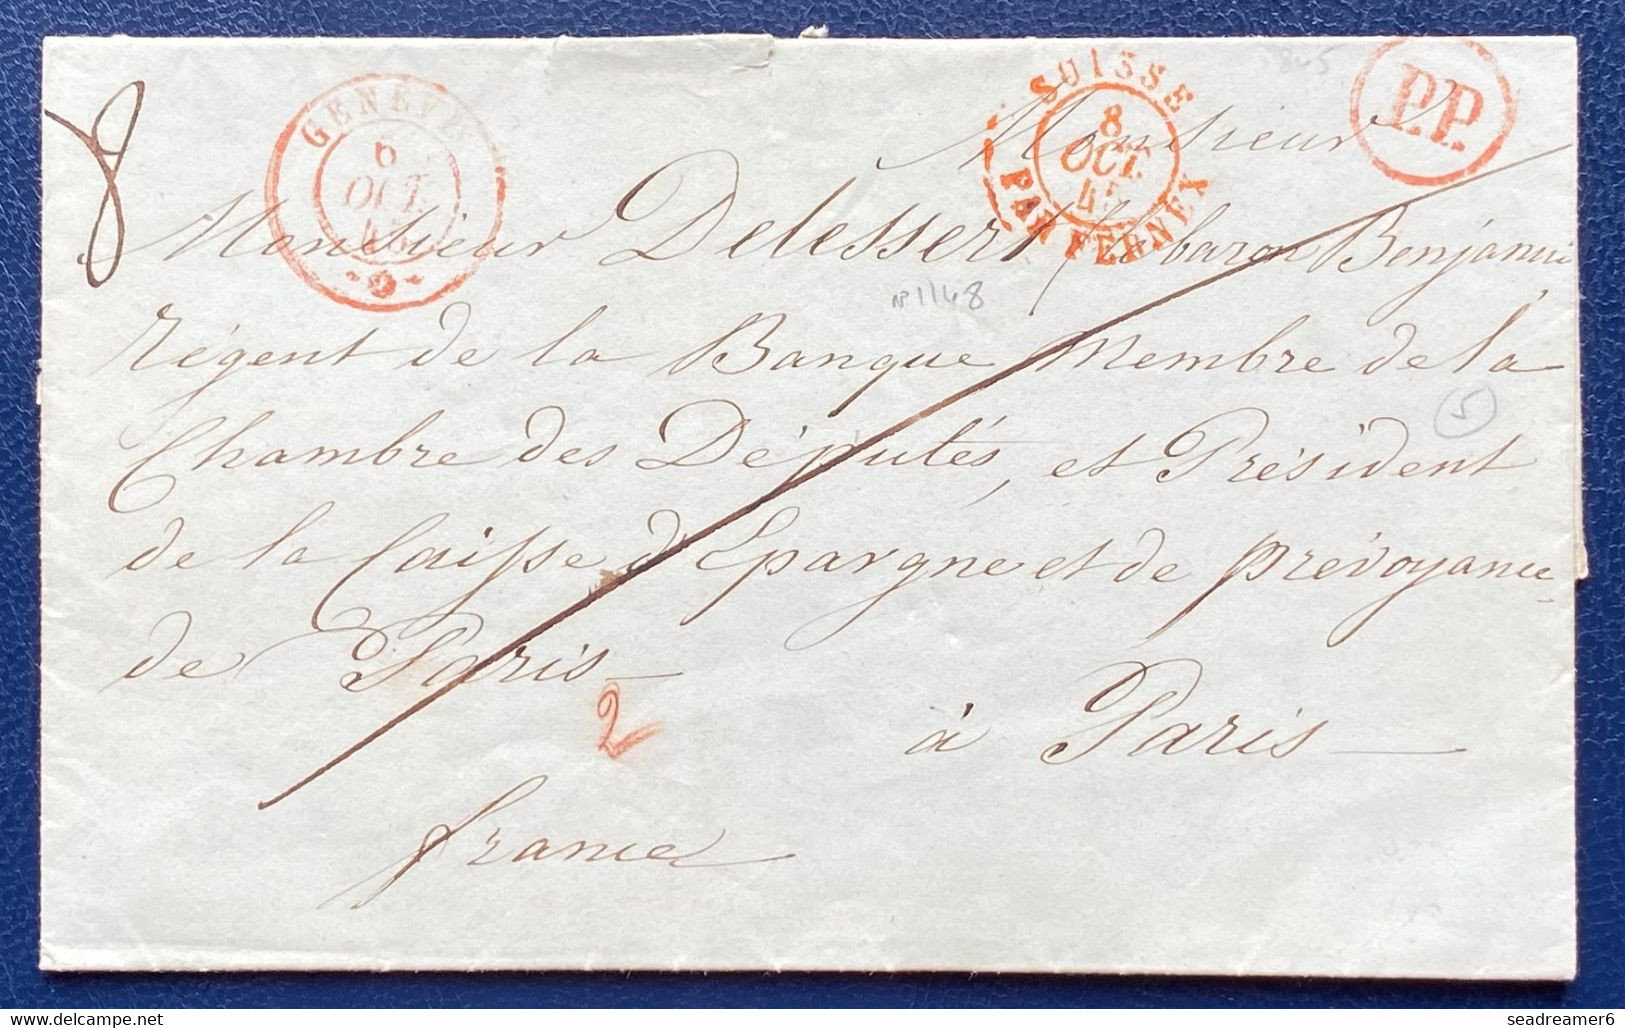 8
GENÈVE
6
OCT.
45
SUISSE
8
OCT.
45
PAR FERNEX
P.P.
1845
Monsieur
Monsieur Delessert le baron Benjamin
régent de la Banque Membre de la
Chambre des Députés, et Président
de la Caisse d'Epargne et de prévoyance
de Paris
à Paris
france
2
n° 1148
5
www.delcampe.net
seadreamer6